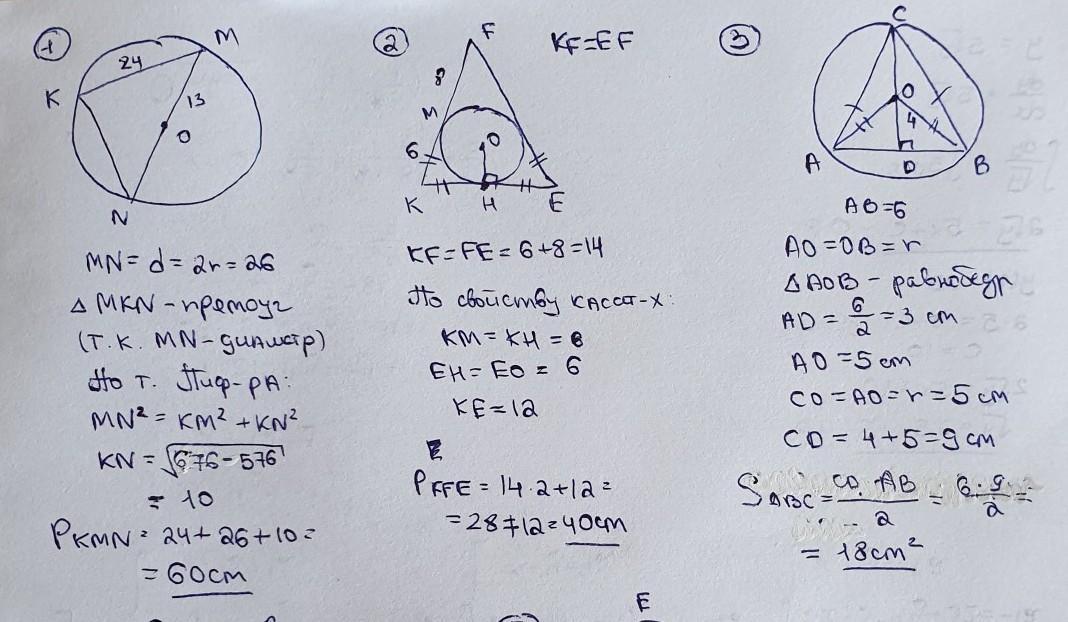 1
M
24
K
13
O
N
MN = d = 2r = 26
△ MKN - прямоуг
(т.к. MN - диаметр)
По т. Пиф-ра:
MN² = KM² + KN²
KN = √676 - 576
= 10
PKMN = 24 + 26 + 10 =
= 60cm
2
F
KF = EF
8
M
6
O
K
H
E
KF = FE = 6 + 8 = 14
По свойству касат-х:
KM = KH = 6
EH = EO = 6
KE = 12
E
= 28 + 12 = 40cm
3
C
O
4
A
D
B
AB = 6
AO = OB = r
△AOB - равнобедр
AD = 6/2 = 3 cm
AO = 5 cm
CO = AO = r = 5 cm
CD = 4 + 5 = 9 cm
SABC = CD · AB / 2 = 6 · 9 / 2 =
= 18cm²
E